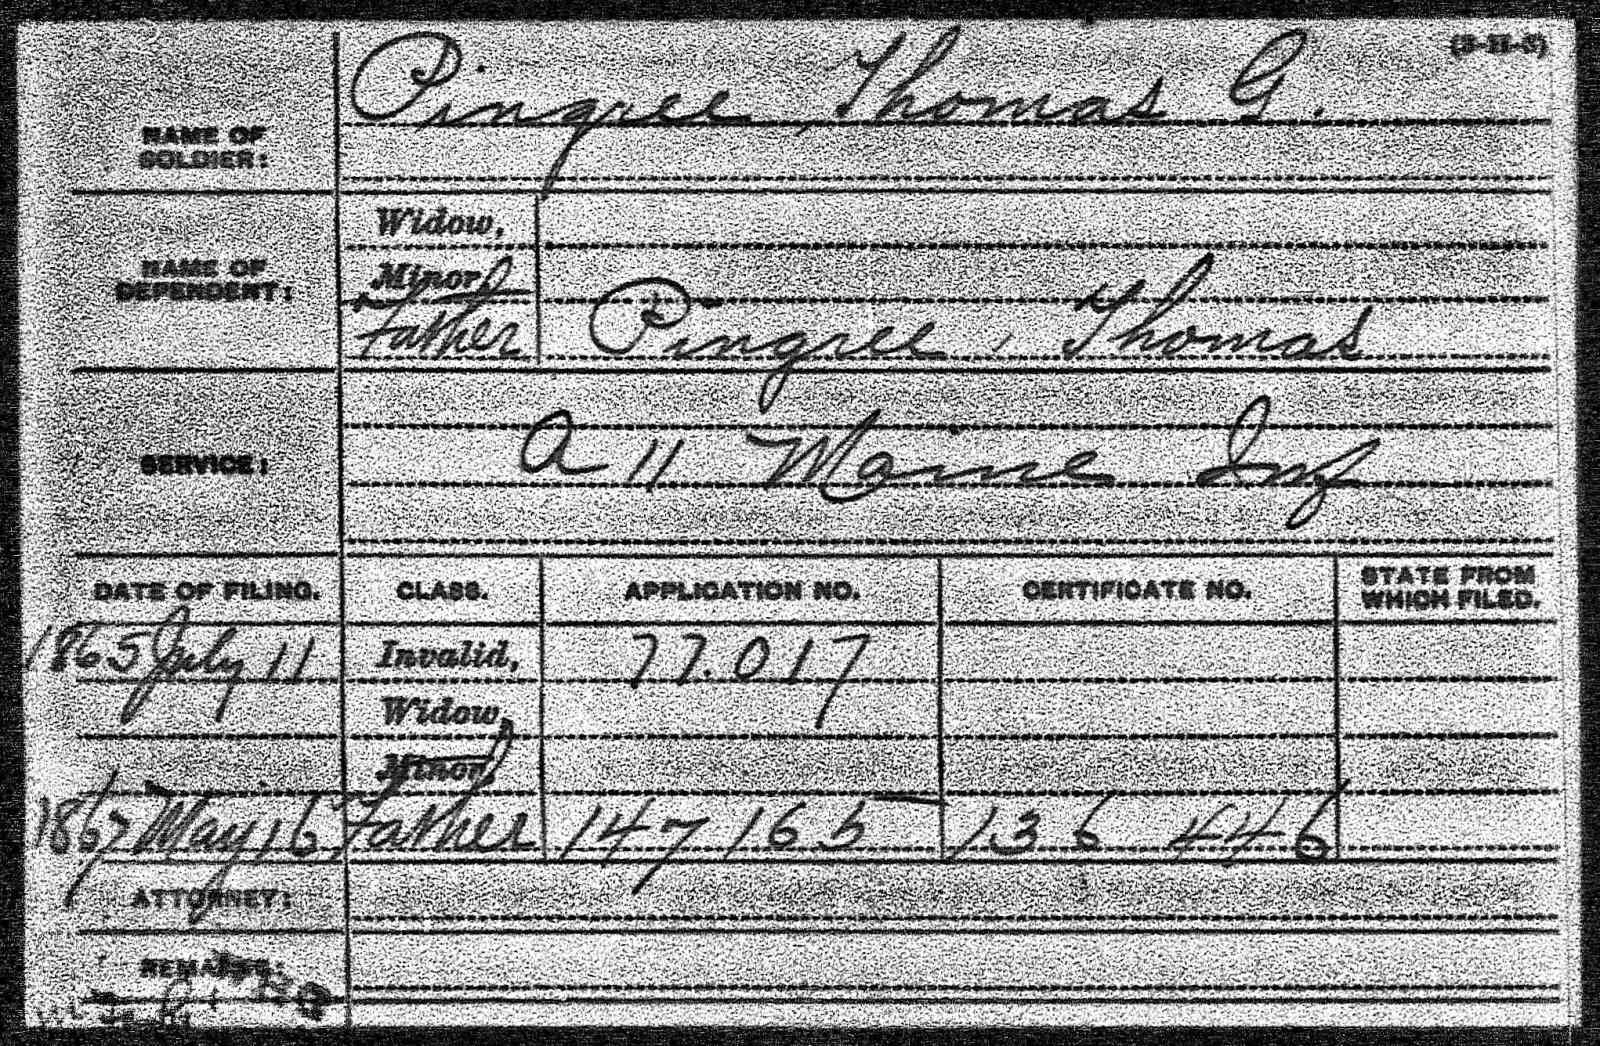 (3-11-3)
Pingree, Thomas G.
NAME OF
SOLDIER:
Widow,
NAME OF
DEPENDENT:
Minor,
Father Pingree, Thomas
SERVICE:
A 11 Maine Inf
DATE OF FILING. CLASS. APPLICATION NO. CERTIFICATE NO. STATE FROM WHICH FILED.
1865 July 11 Invalid, 77.017
Widow,
Minor,
1867 May 16 Father 147 165 136 446
ATTORNEY:
REMARKS: